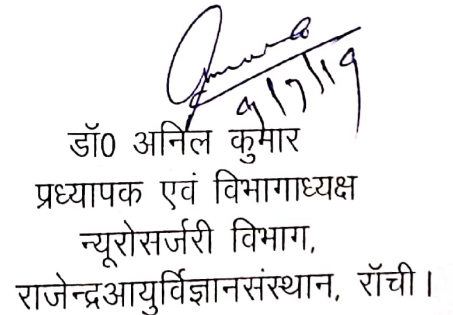 9/7/19
डॉ0 अनिल कुमार
प्रध्यापक एवं विभागाध्यक्ष
न्यूरोसर्जरी विभाग,
राजेन्द्रआयुर्विज्ञानसंस्थान, रॉची।